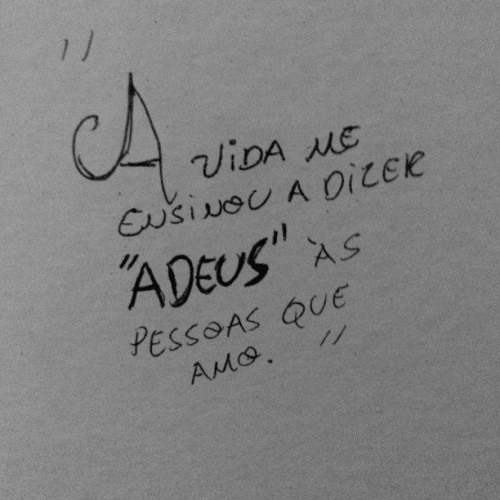 "
A VIDA ME
ENSINOU A DIZER
"ADEUS" ÀS
PESSOAS QUE
AMO. "